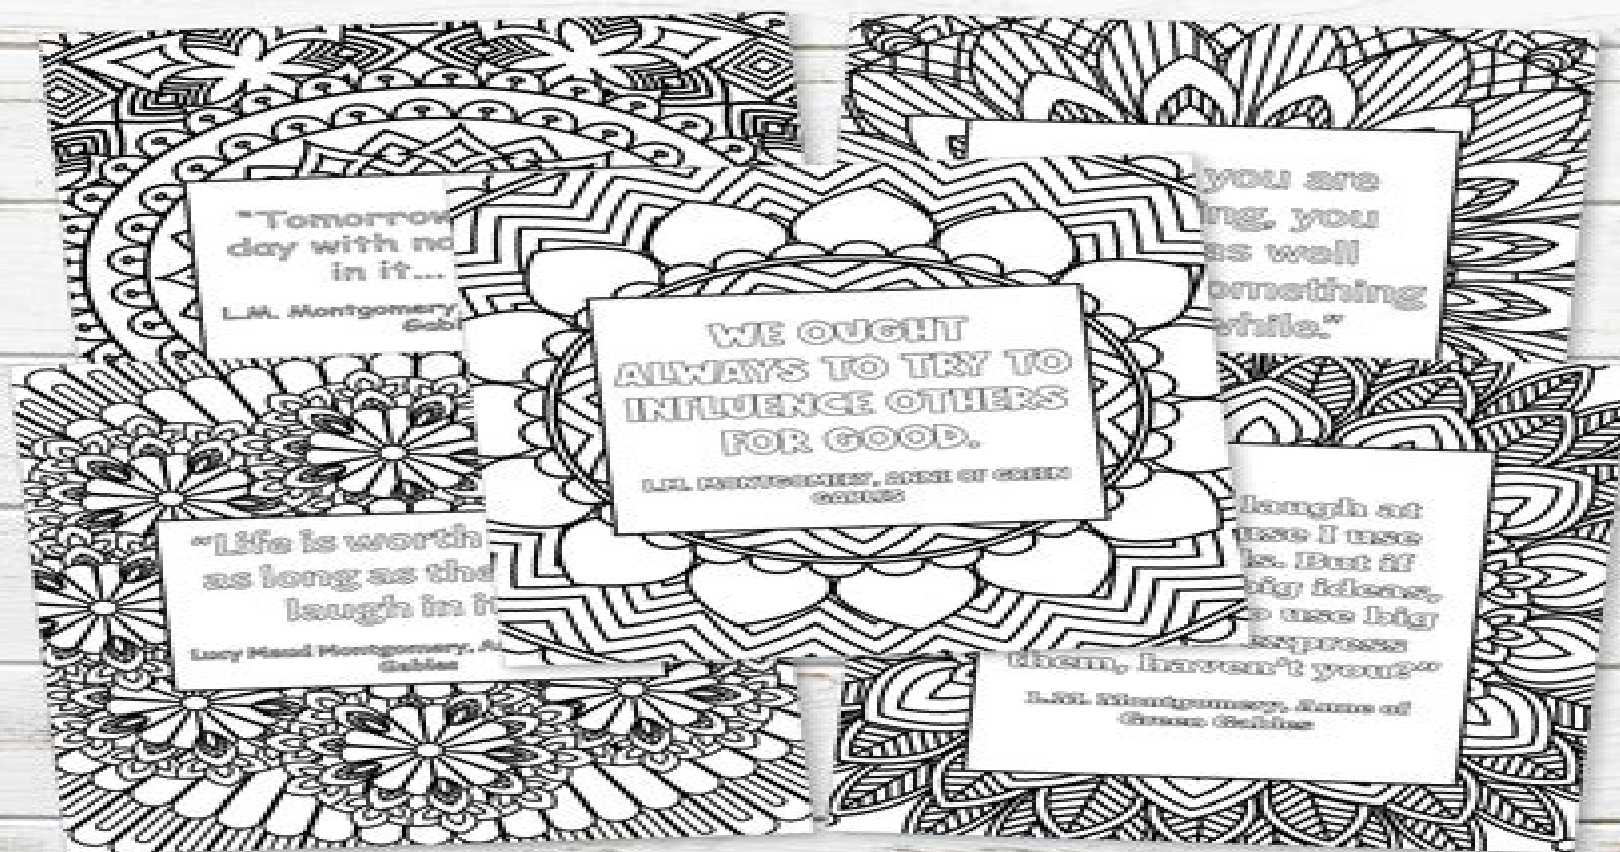 "Tomorrow
day with no
in it...
L.M. Montgomery,
Gabl
you are
ng, you
as well
omething
while."
WE OUGHT
ALWAYS TO TRY TO
INFLUENCE OTHERS
FOR GOOD.
L.M. MONTGOMERY, ANNE OF GREEN
GABLES
"Life is worth
as long as the
laugh in it
Lucy Maud Montgomery, A
Gables
laugh at
use I use
s. But if
big ideas,
o use big
express
them, haven't you?"
L.M. Montgomery, Anne of
Green Gables